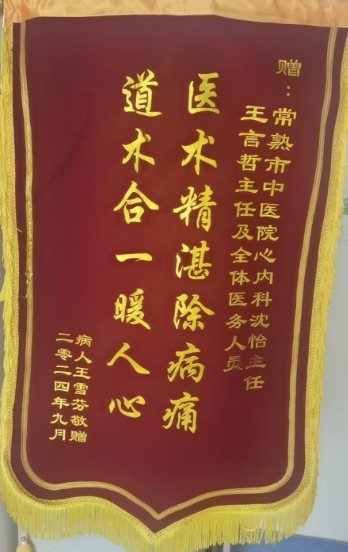 赠：常熟市中医院心内科沈怡主任
王言哲主任及全体医务人员
医术精湛除病痛
道术合一暖人心
病人王雪芬敬赠
二零二四年九月